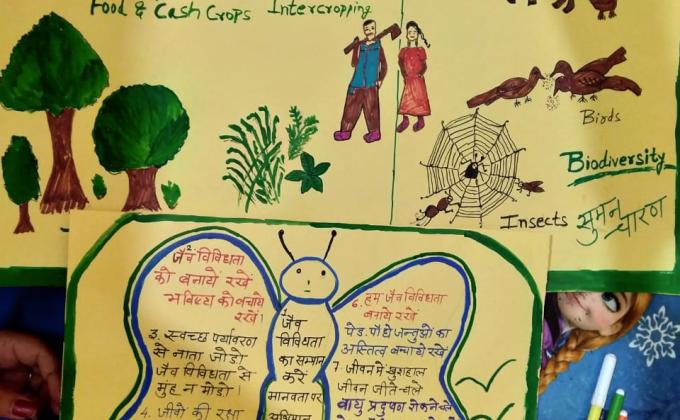 Food & Cash Crops Intercropping
Birds
Biodiversity
Insects
सुमन
चारण
2. जैव विविधता
को बनायें रखें
भविष्य को बचायें
रखें।
3. स्वच्छ पर्यावरण
से नाता जोडो
जैव विविधता से
मुंह न मोडो
4. जीवो की रक्षा
जैव
विविधता
का सम्मान
करें
मानवता पर
6. हम जैव विविधता
बनाये रखें
पेड़. पौधे जन्तुओ का
अस्तित्व बचाये रखें
7. जीवन मे खुशहाल
जीवन जीते चले
वायु प्रदुषण रोकने चले